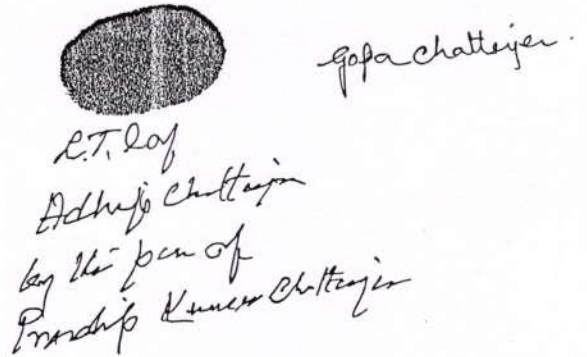 Gopa Chatterjee.
L.T.I of
Adhip Chatterjee
by the pen of
Pradip Kumar Chatterjee